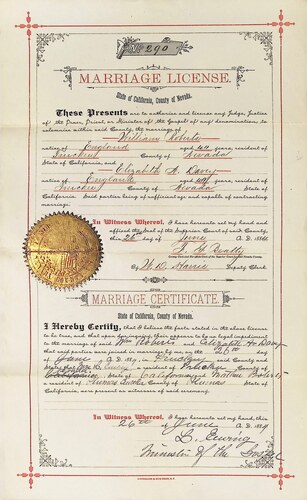 No 290
MARRIAGE LICENSE.
State of California, County of Nevada.
These Presents are to authorize and license any Judge, Justice
of the Peace, Priest, or Minister of the Gospel of any denomination, to
solemnize within said County, the marriage of
William Roberts
native of England aged 44 years, resident of
Truckee County of Nevada
State of California, and
Elizabeth A. Davey
native of England aged years, resident of
Truckee County of Nevada State of
California. Said parties being of sufficient age and capable of contracting
marriage.
In Witness Whereof, I have hereunto set my hand and
affixed the Seal of the Superior Court of said County,
this 26 day of June A.D. 1889
By W. D. Harris Deputy Clerk
MARRIAGE CERTIFICATE.
State of California, County of Nevada.
I Hereby Certify, that I believe the facts stated in the above license
to be true, and that upon due inquiry there appears to be no legal impediment
to the marriage of said Wm Roberts and Elizabeth A. Davey
that said parties were joined by me, on the 26th day
of June 1889, in said County and
State; that
a resident of
County of State of California and
a resident of County of State of
California, are present as witnesses of said ceremony.
In Witness Whereof, I have hereunto set my hand, this
26th day of June A.D. 1889
L. Ewing
Minister of the Gospel